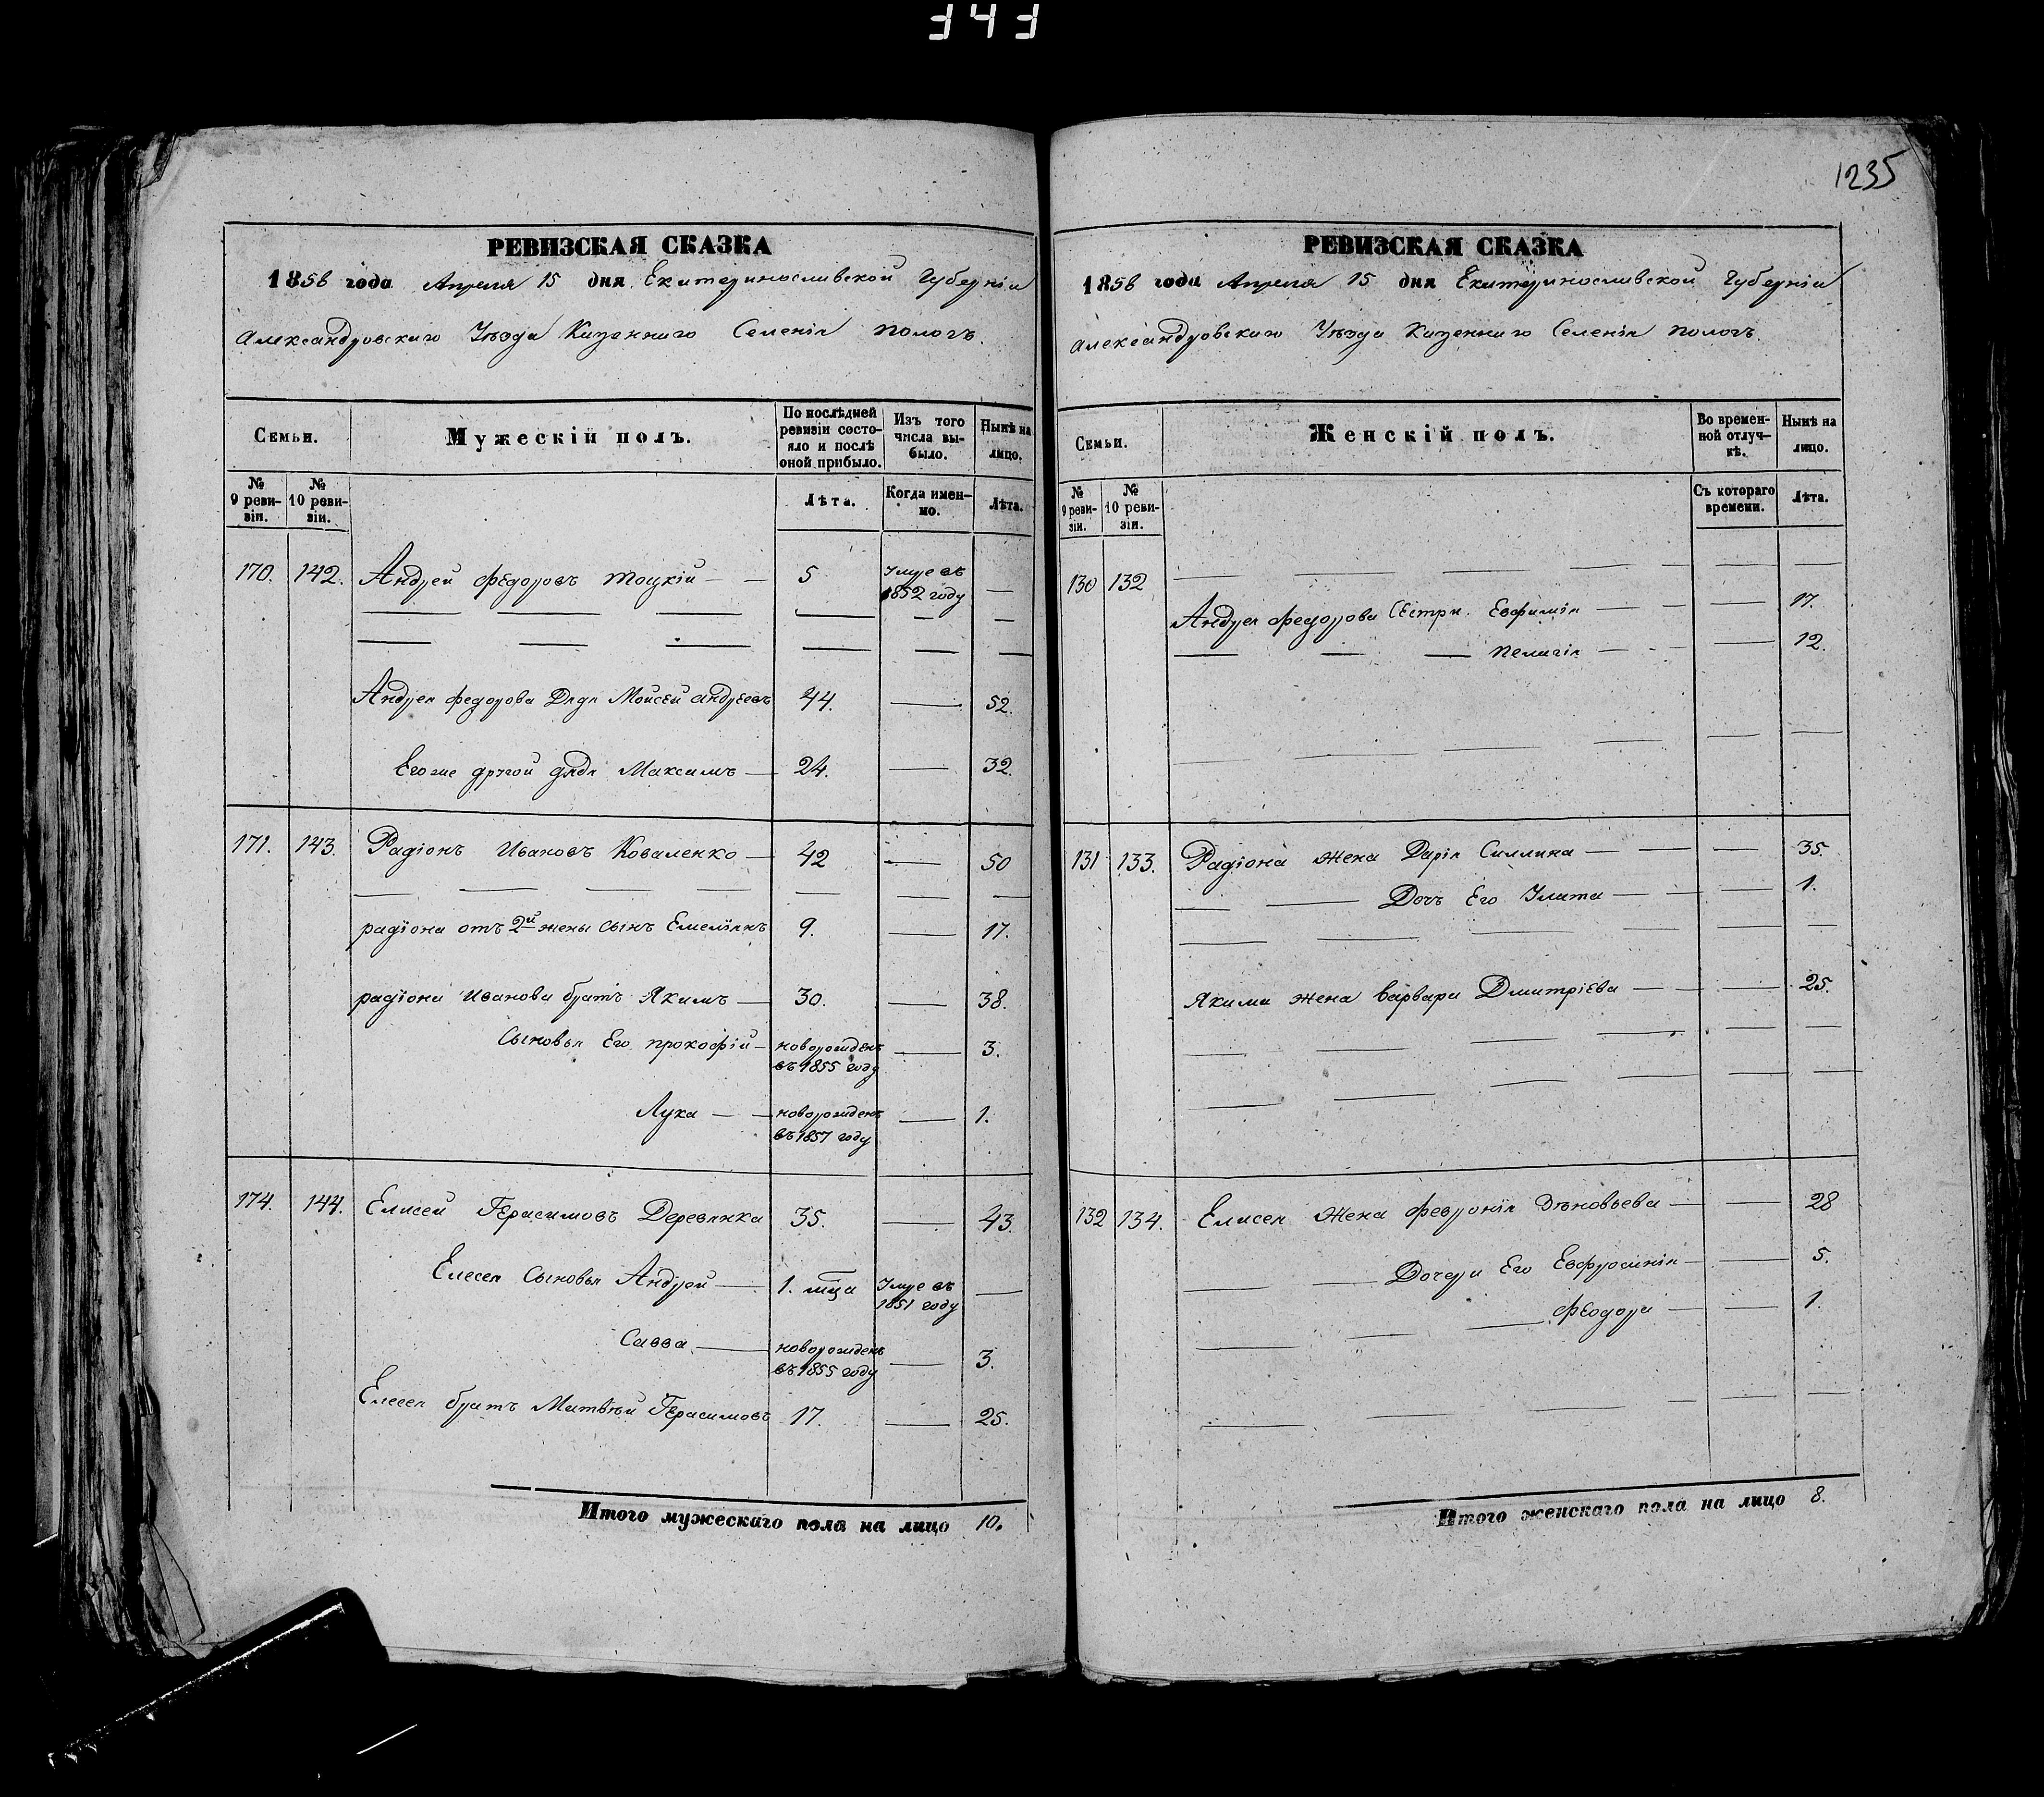 343
1235
РЕВИЗСКАЯ СКАЗКА
1858 года Апреля 15 дня Екатеринославской Губерніи
Александровскаго Уѣзда Казеннаго Селенія пологъ.
Семьи.
Мужескій полъ.
По послѣдней ревизіи состояло и послѣ оной прибыло.
Изъ того числа выбыло.
Нынѣ на лицо.
№ 9 ревизіи.
№ 10 ревизіи.
Лѣта.
Когда именно.
Лѣта.
170. 142. Андрей федоровъ тоцкій — — 5 Умре въ 1852 году —
Андрея федорова Дядя Мойсей андреевъ 44. — 52.
Егоже другой дядя Максимъ — 24. — 32.
171. 143. Радіонъ Ивановъ Коваленко — 42 — 50
радіона отъ 2й жены сынъ Емеліянъ 9. — 17.
радіона Иванова братъ Якимъ — 30. — 38.
Сыновья Его прокофій — новорожденъ въ 1855 году — 3.
Лука — — новорожденъ въ 1857 году — 1.
174. 144. Елисей Герасимовъ Деревянка 35. — 43.
Елесея Сыновья Андрей — 1. мца Умре въ 1851 году —
Савва — новорожденъ въ 1855 году — 3.
Елесея братъ Матвѣй Герасимовъ 17. — 25.
Итого мужескаго пола на лицо 10.
РЕВИЗСКАЯ СКАЗКА
1858 года Апреля 15 дня Екатеринославской Губерніи
александровскаго Уѣзда Казеннаго Селенія пологъ.
Семьи.
Женскій полъ.
Во временной отлучкѣ.
Нынѣ на лицо.
№ 9 ревизіи.
№ 10 ревизіи.
Съ котораго времени.
Лѣта.
130 132
Андрея федорова Сестры Евфимія — — — 17.
— — — пелагія — — — 12.
131 133. Радіона жена Дарія — — — 35.
— — Дочъ Его Улита — — — 1.
Якима жена варвара Дмитріева — — — 25.
132 134. Елисея Жена февронія Зѣновьева — — 28
— — Дочери Его Евфросинія — — 5.
— — — феодора — — 1.
Итого женскаго пола на лицо 8.